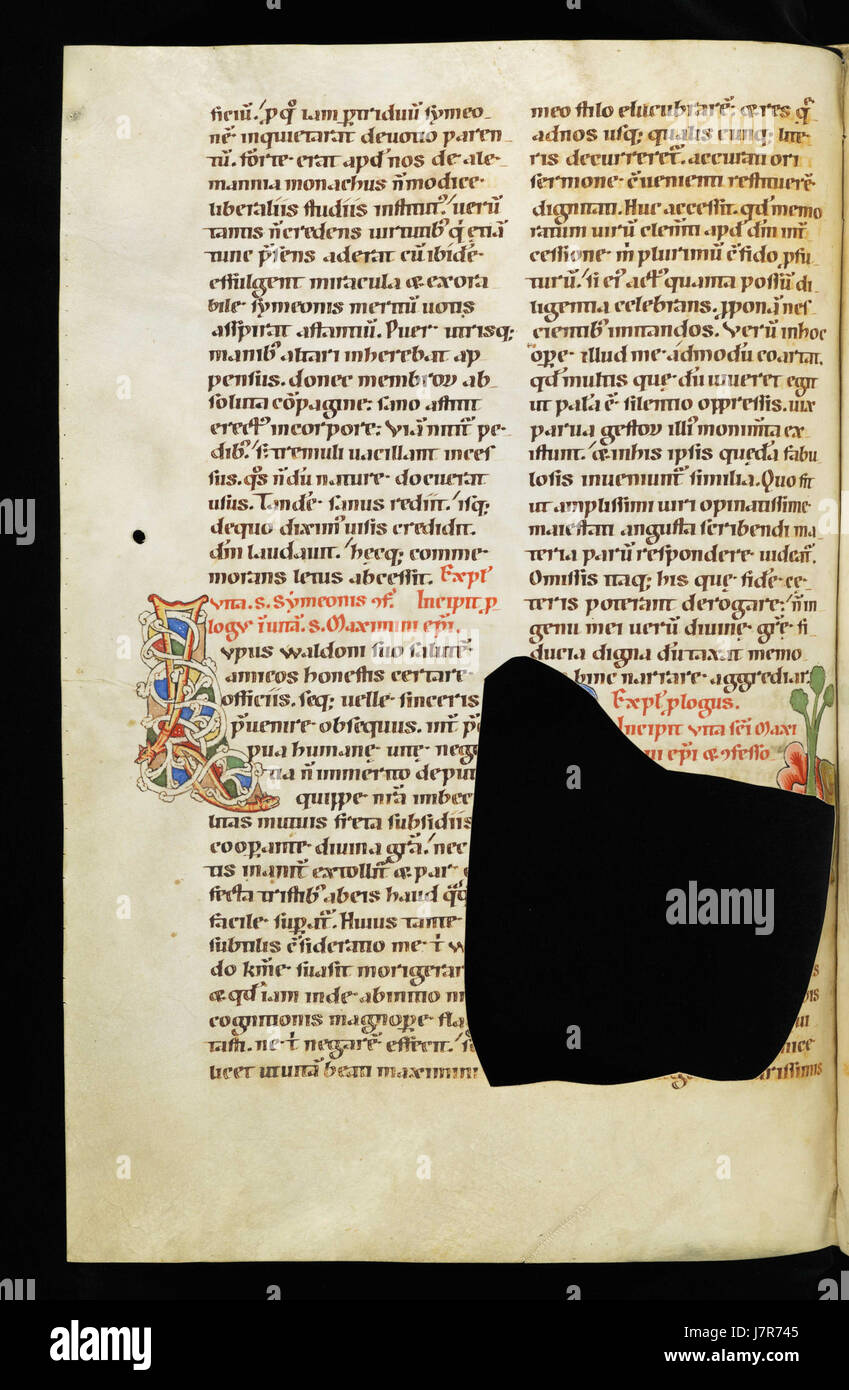 ficiū. pqͦ iam ꝑtriduū symeo
nē inquietarat deuotio paren
tū. forte erat apđ nos de ale
mannia monachus ñmodice
liberaliis studiis
tantis ñcredens uirtutibꝰ
tunc p̄sens aderat cū ibidē
effulgent miracula & exora
bile symeonis meritū uotis
aspirat astantiū. Puer utrisq;
manibꝰ altari inherebat ap
pensus. donec membroꝝ ab
soluta cōpagine: sano astitit
erectꝰ incorpore. Viā pe
dibꝰ. s; tremuli uacillant inces
sus. qͦs ñdū nature docuerat
usus. Tandē sanus rediit. isq;
dequo diximꝰ uisis credidit.
dm̄ laudauit. hecq; comme
morans letus abcessit. Expl̄
uita. s. Symeonis ꝯf. Incipit ꝓ
logꝰ inuitā. s. Maximini ep̄i.
Lupus waldoni suo salutē.
amicos honestis certare
officiis. seq; uelle sinceris
p̄uenire obsequiis. int̄
pua humane uite nego
tia ñ inmerito deput
quippe nr̄a imbec
litas mutuis freta subsidiis
cooꝑante diuina grā. nec
&
fecta tristibꝰ abeis haud
facile suꝑat̄. Huius tante
subtilis ꝯsideratio me
do suasit morigerar
& qđ iam inde abinitio
cognitionis magnoꝑe fla
negarē effecit.
licet utuitā beati maximini
meo stilo elucubrarē. & res
adnos usq; qualis cunq; lite
ris decurreret. accurati ori
sermone ꝯuenienti restituerē
dignitati. Huc accessit. qđ memo
ratum uirū clem̄ti apđ dm̄ int̄
cessione m̄ plurimū ꝯfido ꝓfu
turū. si eiꝰ actꝰ quanta possū di
ligentia celebrans. ꝓponā nes
cientibꝰ imitandos. Verū inhoc
oꝑe illud me admodū coartat.
qđ multis que dū uiueret egit
ut palā ē silentio oppressis. uix
parua gestoꝝ illiꝰ monimta ex
istunt. & inhis ipsis quedā fabu
losis inueniunt̄ similia. Quo fit
ut amplissimi uiri opinatissime
maiestati angusta scribendi ma
teria parū respondere uideat̄.
Omissis itaq; his que fidē ce
teris poterant derogare: ñ in
genii mei uerū diuinę grę fi
ducia digna dūtaxat memo
hinc narrare aggrediar.
Expl̄ ꝓlogus.
Incipit uita sc̄i Maxi
ni ep̄i & ꝯfesso
alamy
Image ID: J7R745
www.alamy.com